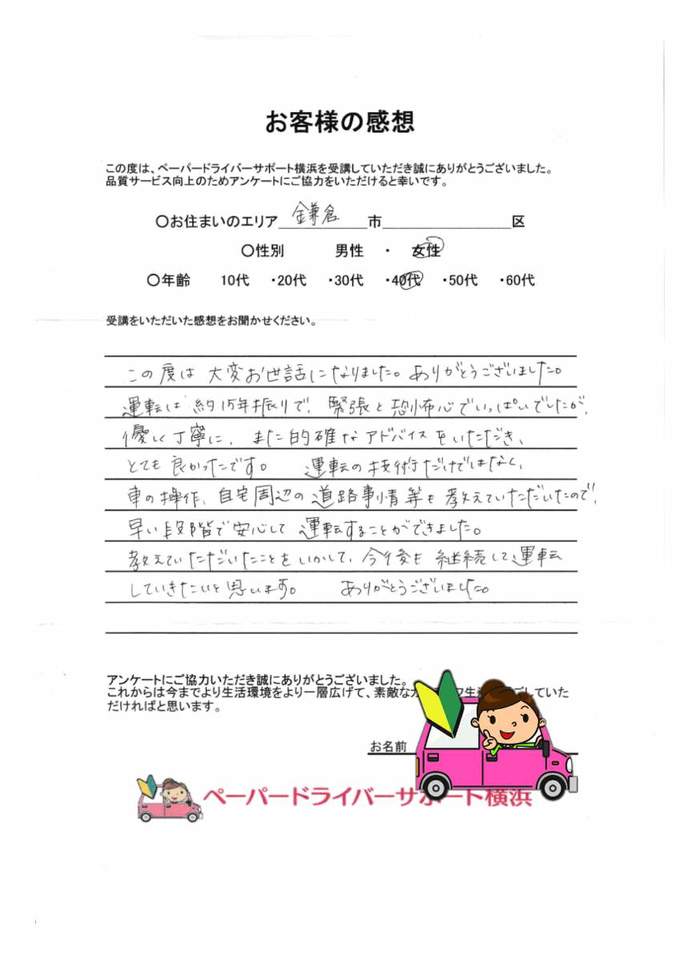 お客様の感想
この度は、ペーパードライバーサポート横浜を受講していただき誠にありがとうございました。
品質サービス向上のためアンケートにご協力をいただけると幸いです。
〇お住まいのエリア 鎌倉 市 区
〇性別 男性 ・ 女性
〇年齢 10代 ・20代 ・30代 ・40代 ・50代 ・60代
受講をいただいた感想をお聞かせください。
この度は 大変お世話になりました。ありがとうございました。
運転は 約15年振りで、緊張と恐怖心でいっぱいでしたが、
優しく丁寧に、また的確なアドバイスをいただき、
とても良かったです。 運転の技術だけではなく、
車の操作、自宅周辺の道路事情等も教えていただいたので、
早い段階で安心して運転することができました。
教えていただいたことをいかして、今後も継続して運転
していきたいと思います。 ありがとうございました。
アンケートにご協力いただき誠にありがとうございました。
これからは今までより生活環境をより一層広げて、素敵な していた
だければと思います。
お名前
ペーパードライバーサポート横浜